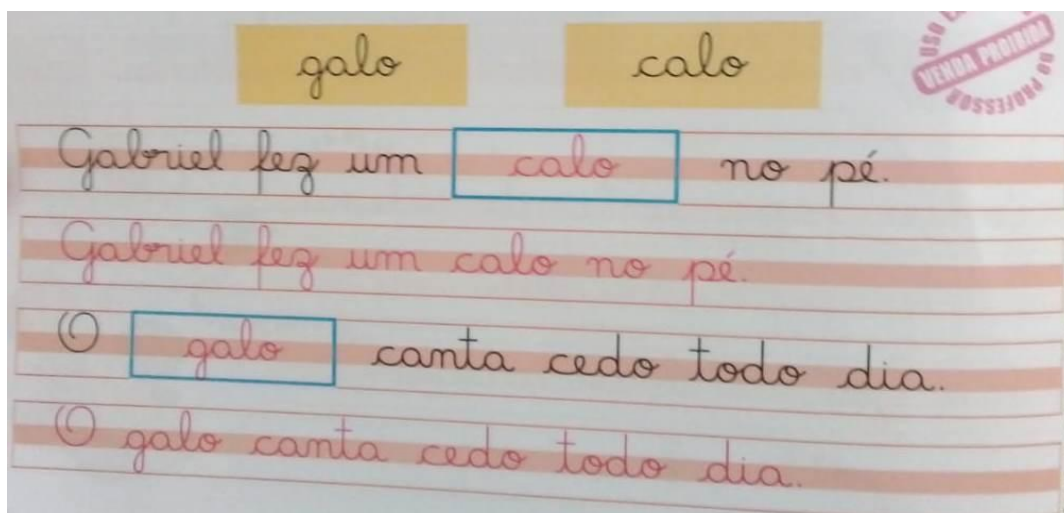 galo calo
USO
VENDA PROIBIDA
DO PROFESSOR
Gabriel fez um calo no pé.
Gabriel fez um calo no pé.
O galo canta cedo todo dia.
O galo canta cedo todo dia.